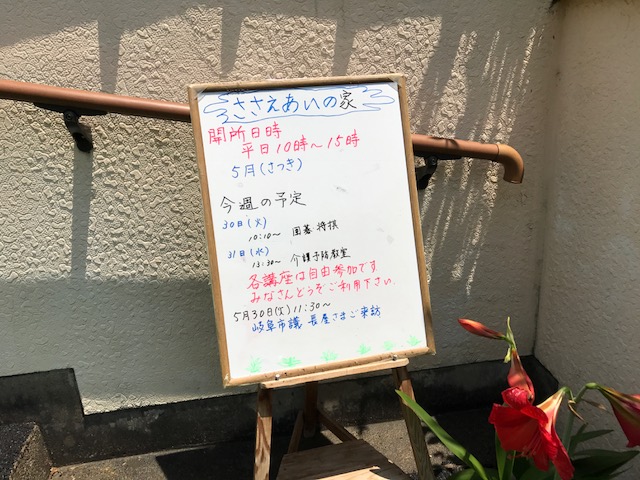 ささえあいの家
開所日時
平日10時～15時
5月(さつき)
今週の予定
30日(火)
10:10～ 囲碁 将棋
31日(水)
13:30～ 介護予防教室
各講座は自由参加です
みなさんどうぞご利用下さい.
5月30日(火)11:30～
岐阜市議 長屋さまご来訪